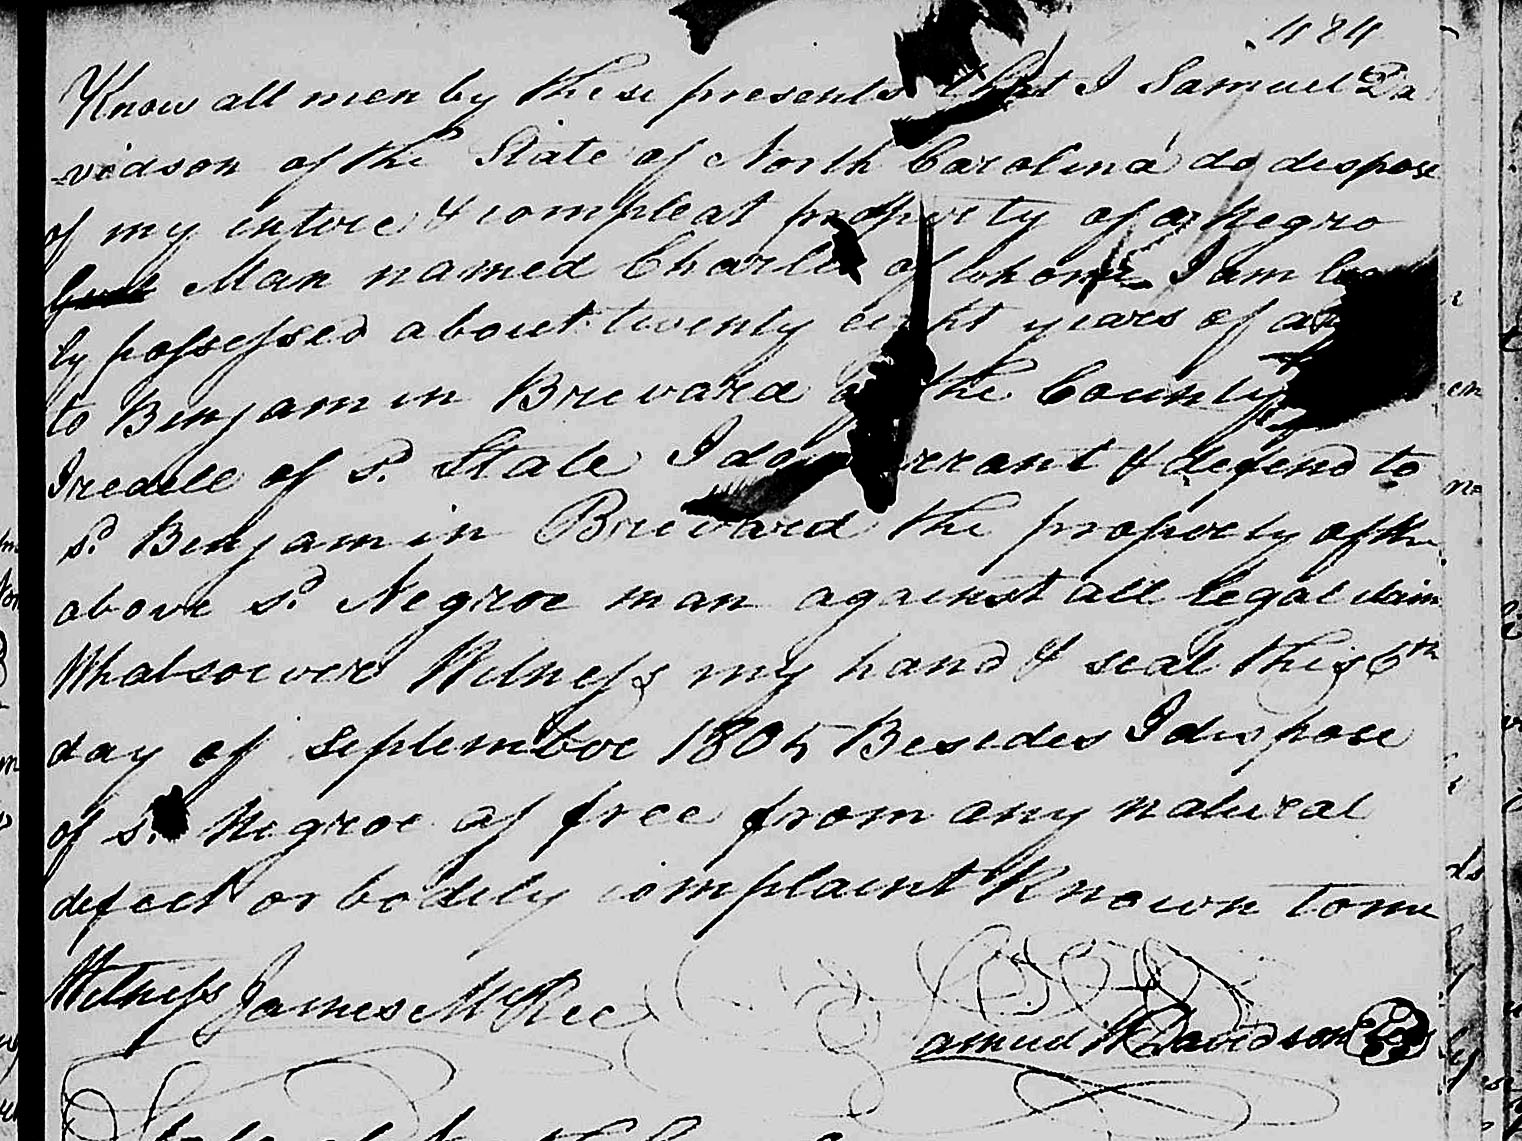 484
Know all men by these presents that I Samuel Da
vidson of the State of North Carolina do dispose
of my intire & compleat property of a Negro
Man named Charles of whome I am
ly possessed about twenty eight years of
to Benjamin Brevard of the County
Iredell of sd. State I do warrant & defend to
sd. Benjamin Brevard the property of the
above sd. Negroe man against all legal claim
Whatsoever Witness my hand & seal this 6th
day of September 1805 Besides I dispose
of sd. Negroe as free from any natural
defect or bodily complaint Known to me
Witness James McRee
Samuel W Davidson